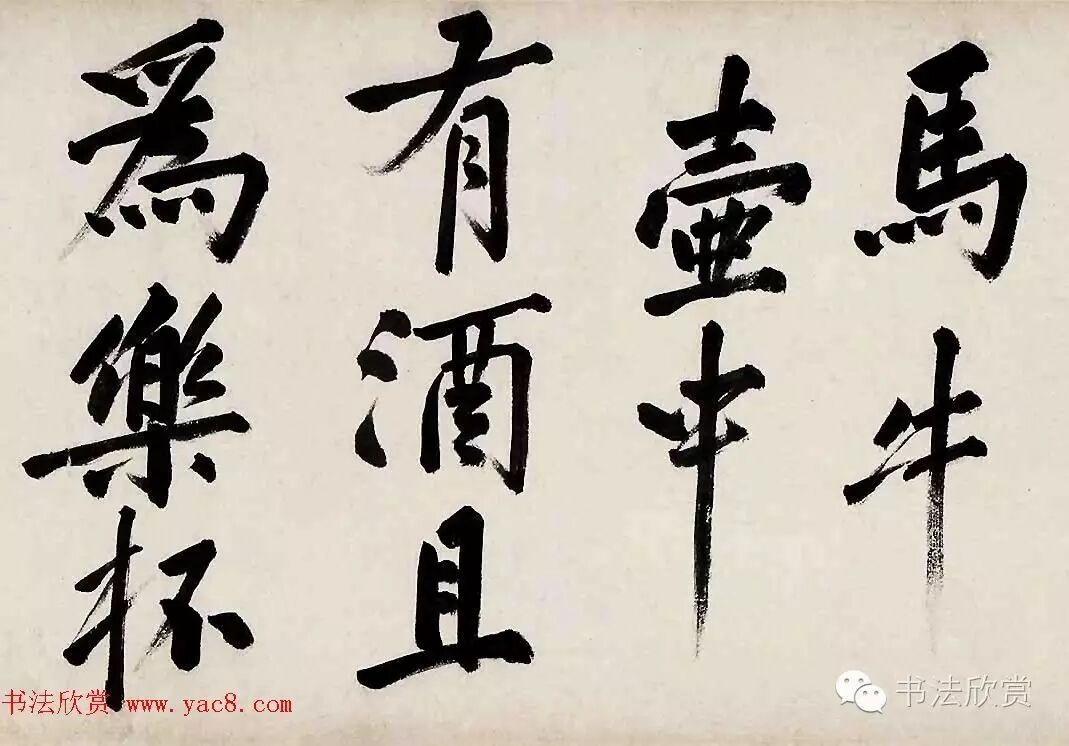 馬牛
壺中
有酒且
為樂杯
书法欣赏 www.yac8.com
书法欣赏